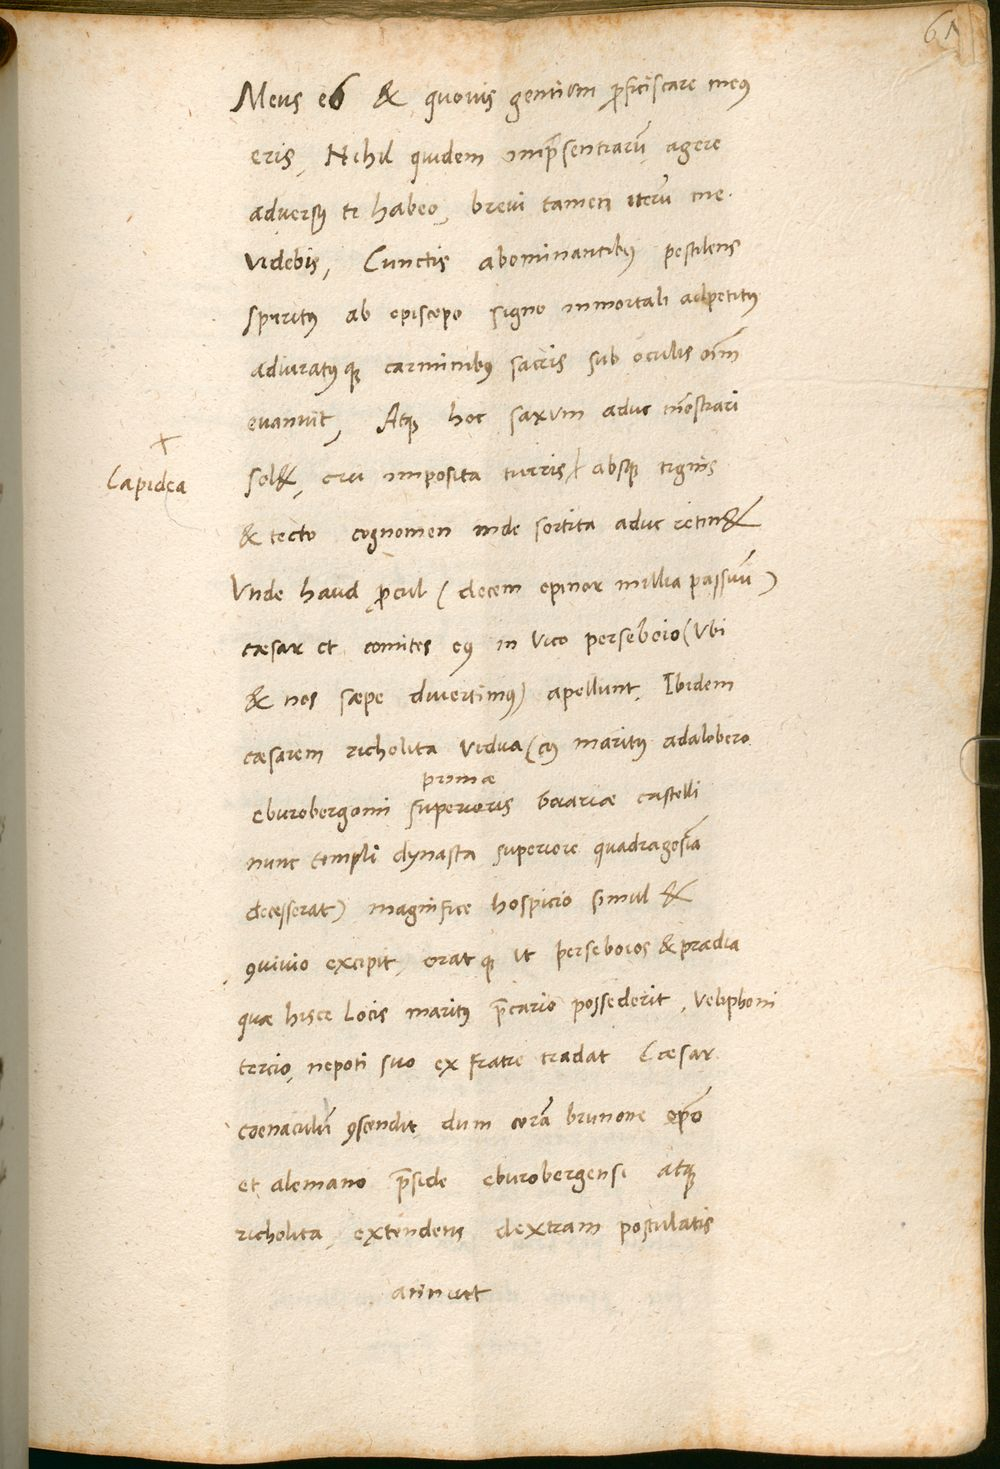 61
Meus es & quovis gentium p̱ficiscare meꝰ
eris, Nihil quidem imp̄sentiarū agere
adversꝰ te habeo, brevi tamen iterū me
videbis, Cunctis abominantibꝰ pestilens
spiritꝰ ab episcopo signo immortali adpetitꝰ
adiuratꝰ qꝫ carminibꝰ sacris sub oculis oīm
evanuit, Atqꝫ hoc saxum aduc mōstrari
sol&, cui imposita turris absqꝫ tignis
+
Lapidea
& tecto cognomen inde sortita aduc retin&
Vnde haud p̱cul ( decem opinor millia passuū )
cæsar et comites eꝰ in vico perseboio ( vbi
& nos sæpe divertimꝰ ) apellunt, Ibidem
cæsarem richolita vidua ( cꝰ maritꝰ adalobero
primæ
eburobergomi superioris boiariæ castelli
nunc templi dynasta superiore quadragesīa
decesserat ) magnifice hospicio simul &
ꝯvivio excipit, orat qꝫ vt perseboios & prædia
quæ hisce locis maritꝰ p̄cario possederit, veliphoni
tercio, nepoti suo ex fratre tradat Cæsar
coenaculū ꝯscendit dum corā brunone ep̄o
et alemano p̄side eburobergensi atqꝫ
richolita, extendens dextram postulatis
annuet